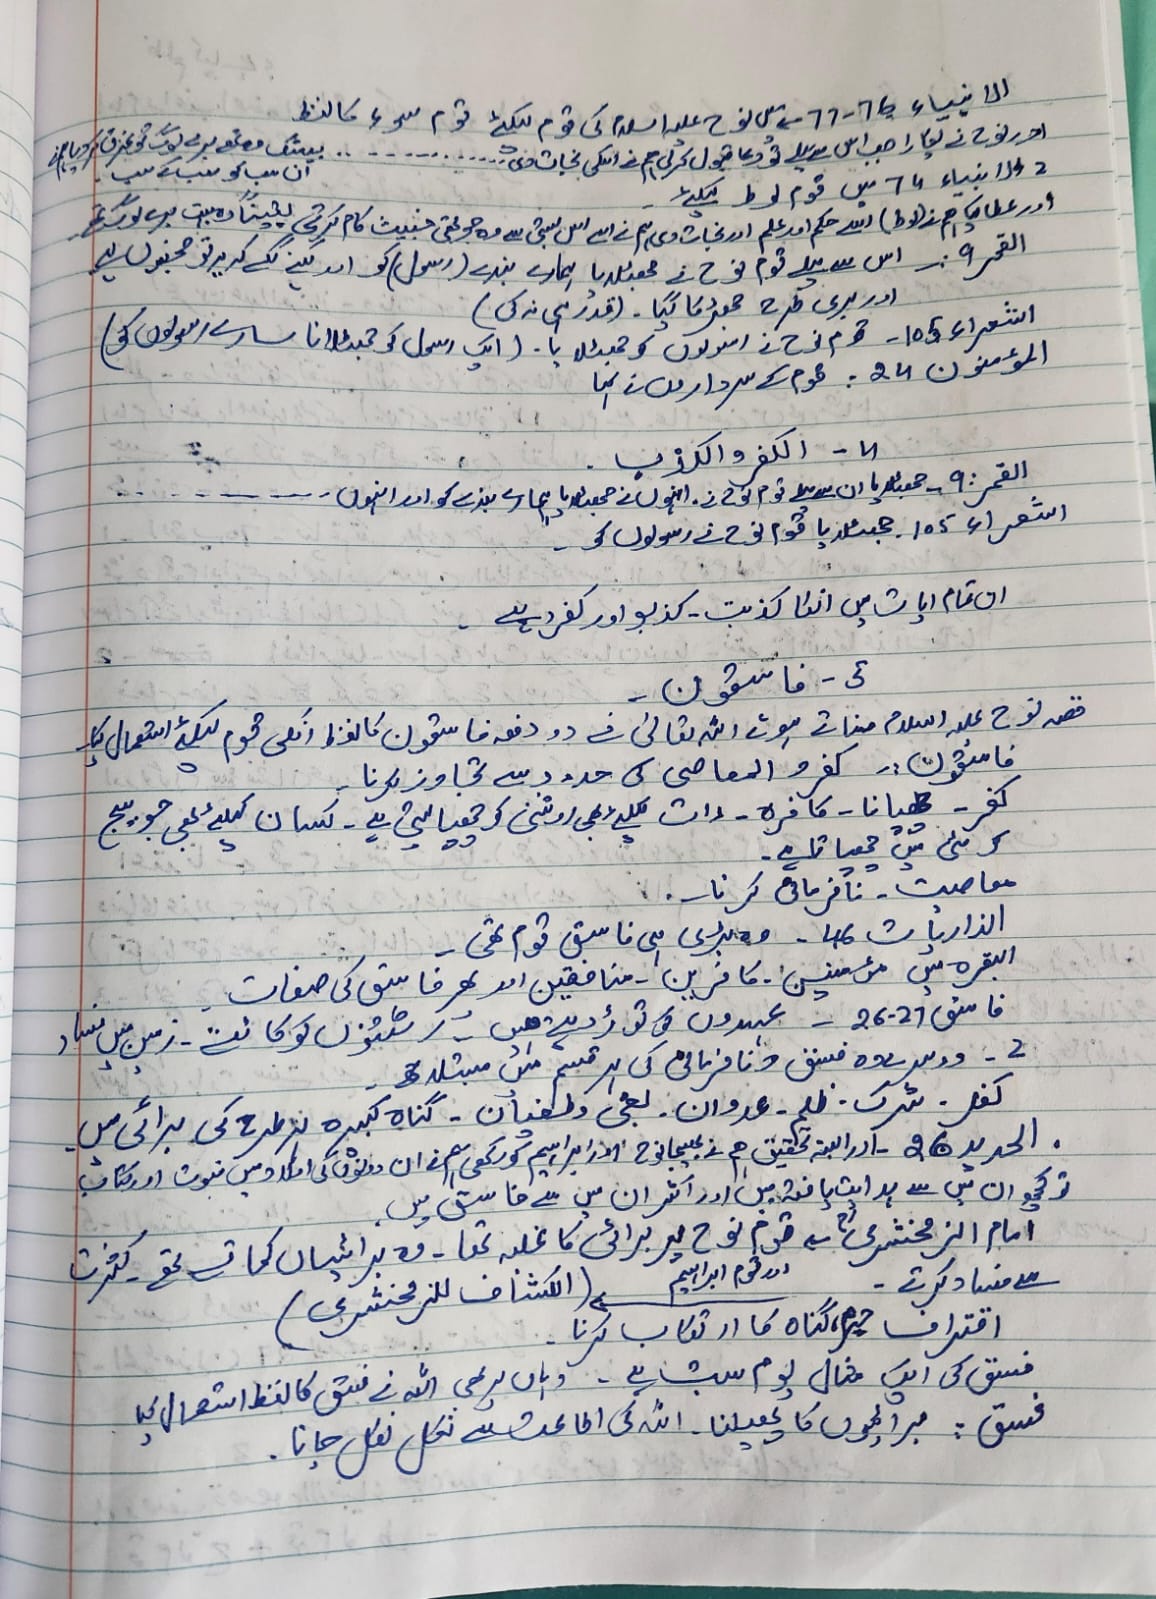 الانبیاء 76-77 میں نوح علیہ اسلام کی قوم کیلئے قوم سوء کا لفظ
اور نوح نے پکارا جب اس سے پہلے تو دعا قبول کرلی ہم نے اسکی نجات دی .............. بیشک وہ تھے برے لوگ تو غرق کر دیا ہم نے
ان سب کو سب کے سب۔
2 الانبیاء 74 میں قوم لوط کیلئے۔
اور عطا کیا ہم نے (لوط) اسے حکم اور علم اور نجات دی ہم نے اسے اس بستی سے وہ جو تھی خبیث کام کرتی یقیناً وہ بہت برے لوگ تھے۔
القمر 9 :۔ اس سے پہلے قوم نوح نے جھٹلایا ہمارے بندے (رسول) کو اور کہنے لگے کہ یہ تو مجنون ہے
اور بری طرح جھڑکا گیا۔ (قدر ہی نہ کی)
الشعراء 105۔ قوم نوح نے رسولوں کو جھٹلایا۔ (ایک رسول کو جھٹلانا سارے رسولوں کو)
المؤمنون 24 : قوم کے سرداروں نے کہا
4 - الکفر و الکذب۔
القمر : 9 ۔ جھٹلایا ان سے پہلے قوم نوح نے۔ انہوں نے جھٹلایا ہمارے بندے کو اور انہوں ----------
اشعراء 105۔ جھٹلایا قوم نوح نے رسولوں کو۔
ان تمام ایات میں کذبت۔ کذبو اور کفر ہے۔
5 - فاسقون۔
قصہ نوح علیہ اسلام سناتے ہوئے اللہ تعالیٰ نے دو دفعہ فاسقون کا لفظ انکی قوم کیلئے استعمال کیا۔
فاسقون :۔ کفر و المعاصی کی حدود سے تجاوز کرنا۔
کفر ۔ چھپانا ۔ کافرہ ۔ رات کیلئے بھی روشنی کو چھپا لیتی ہے۔ کسان کیلئے بھی جو بیج
کو مٹی میں چھپاتا ہے۔
معاصیت ۔ نافرمانی کرنا۔
الذاریات 46 ۔ وہ بڑی ہی فاسق قوم تھی۔
البقرہ میں مؤمنین۔ کافرین۔ منافقین اور پھر فاسق کی صفات۔
فاسق 26-27 ۔ عہدوں کو توڑ دیتے ہیں ۔ رشتوں کو کاٹتے ۔ زمین میں فساد
2 ۔ دوسرے وہ فسق و نافرمانی کی ہر قسم میں مبتلا تھے۔
کفر ۔ شرک ۔ ظلم ۔ عدوان ۔ بغی و طغیان ۔ گناہ کبیرہ ہر طرح کی برائی میں
الحدید 26 ۔ اور البتہ تحقیق ہم نے بھیجا نوح اور ابراہیم کو رکھی ہم نے ان دونوں کی اولاد میں نبوت اور کتاب
تو کچھ ان میں سے ہدایت یافتہ ہیں اور اکثر ان میں سے فاسق ہیں۔
امام الزمخشریؒ قوم نوح پر برائی کا غلبہ تھا۔ وہ برائیاں کماتے تھے۔ کثرت
سے فساد کرتے۔ اور قوم ابراہیم (الکشاف للزمخشری)
اقتراف جرم، گناہ کا ارتکاب کرنا۔
فسق کی ایک مثال یوم سبت ہے۔ وہاں پر بھی اللہ نے فسق کا لفظ استعمال کیا
فسق : برائیوں کا پھیلنا۔ اللہ کی اطاعت سے نکل نکل جانا۔